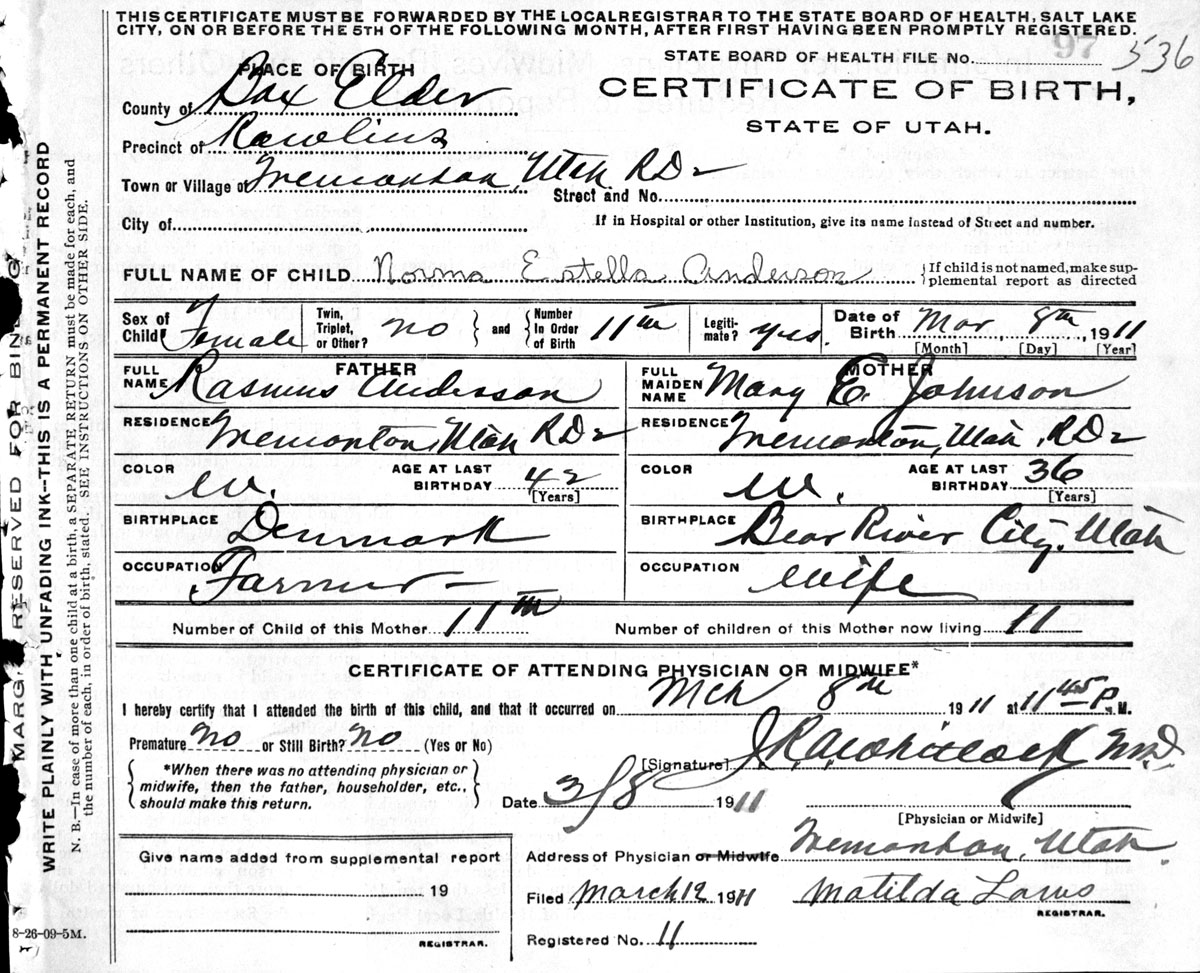 THIS CERTIFICATE MUST BE FORWARDED BY THE LOCAL REGISTRAR TO THE STATE BOARD OF HEALTH, SALT LAKE
CITY, ON OR BEFORE THE 5TH OF THE FOLLOWING MONTH, AFTER FIRST HAVING BEEN PROMPTLY REGISTERED.
STATE BOARD OF HEALTH FILE No. 97 536
PLACE OF BIRTH
County of Box Elder
CERTIFICATE OF BIRTH,
STATE OF UTAH.
Precinct of Rawlins
Town or Village of Tremonton, Utah R D 2
Street and No.
City of
If in Hospital or other Institution, give its name instead of Street and number.
FULL NAME OF CHILD Norma Estella Anderson
{If child is not named, make sup-
plemental report as directed
Sex of Child Female
Twin, Triplet, or Other? no } and { Number in Order of Birth 11th
Legiti-mate? yes.
Date of Birth Mar, 8th, 1911
[Month] [Day] [Year]
FATHER
FULL NAME Rasmus Anderson
RESIDENCE Tremonton, Utah R D 2
COLOR w. AGE AT LAST BIRTHDAY 42 [Years]
BIRTHPLACE Denmark
OCCUPATION Farmer
MOTHER
FULL MAIDEN NAME Mary E. Johnson
RESIDENCE Tremonton, Utah. R D 2
COLOR w. AGE AT LAST BIRTHDAY 36 [Years]
BIRTHPLACE Bear River City, Utah
OCCUPATION wife
Number of Child of this Mother 11th Number of children of this Mother now living 11
CERTIFICATE OF ATTENDING PHYSICIAN OR MIDWIFE*
I hereby certify that I attended the birth of this child, and that it occurred on Mch 8th 1911 at 11 45 P. M.
Premature no or Still Birth? no (Yes or No)
{ *When there was no attending physician or
midwife, then the father, householder, etc.,
should make this return. }
[Signature] M.D.
Date 3/8 1911
[Physician or Midwife]
Address of Physician or Midwife Tremonton, Utah.
Filed March 12 1911 Matilda
REGISTRAR.
Registered No. 11
Give name added from supplemental report
19
REGISTRAR.
8-26-09-5M.
MARGIN RESERVED FOR BINDING
WRITE PLAINLY WITH UNFADING INK--THIS IS A PERMANENT RECORD
N. B.—In case of more than one child at a birth, a SEPARATE RETURN must be made for each, and
the number of each, in order of birth, stated. SEE INSTRUCTIONS ON OTHER SIDE.